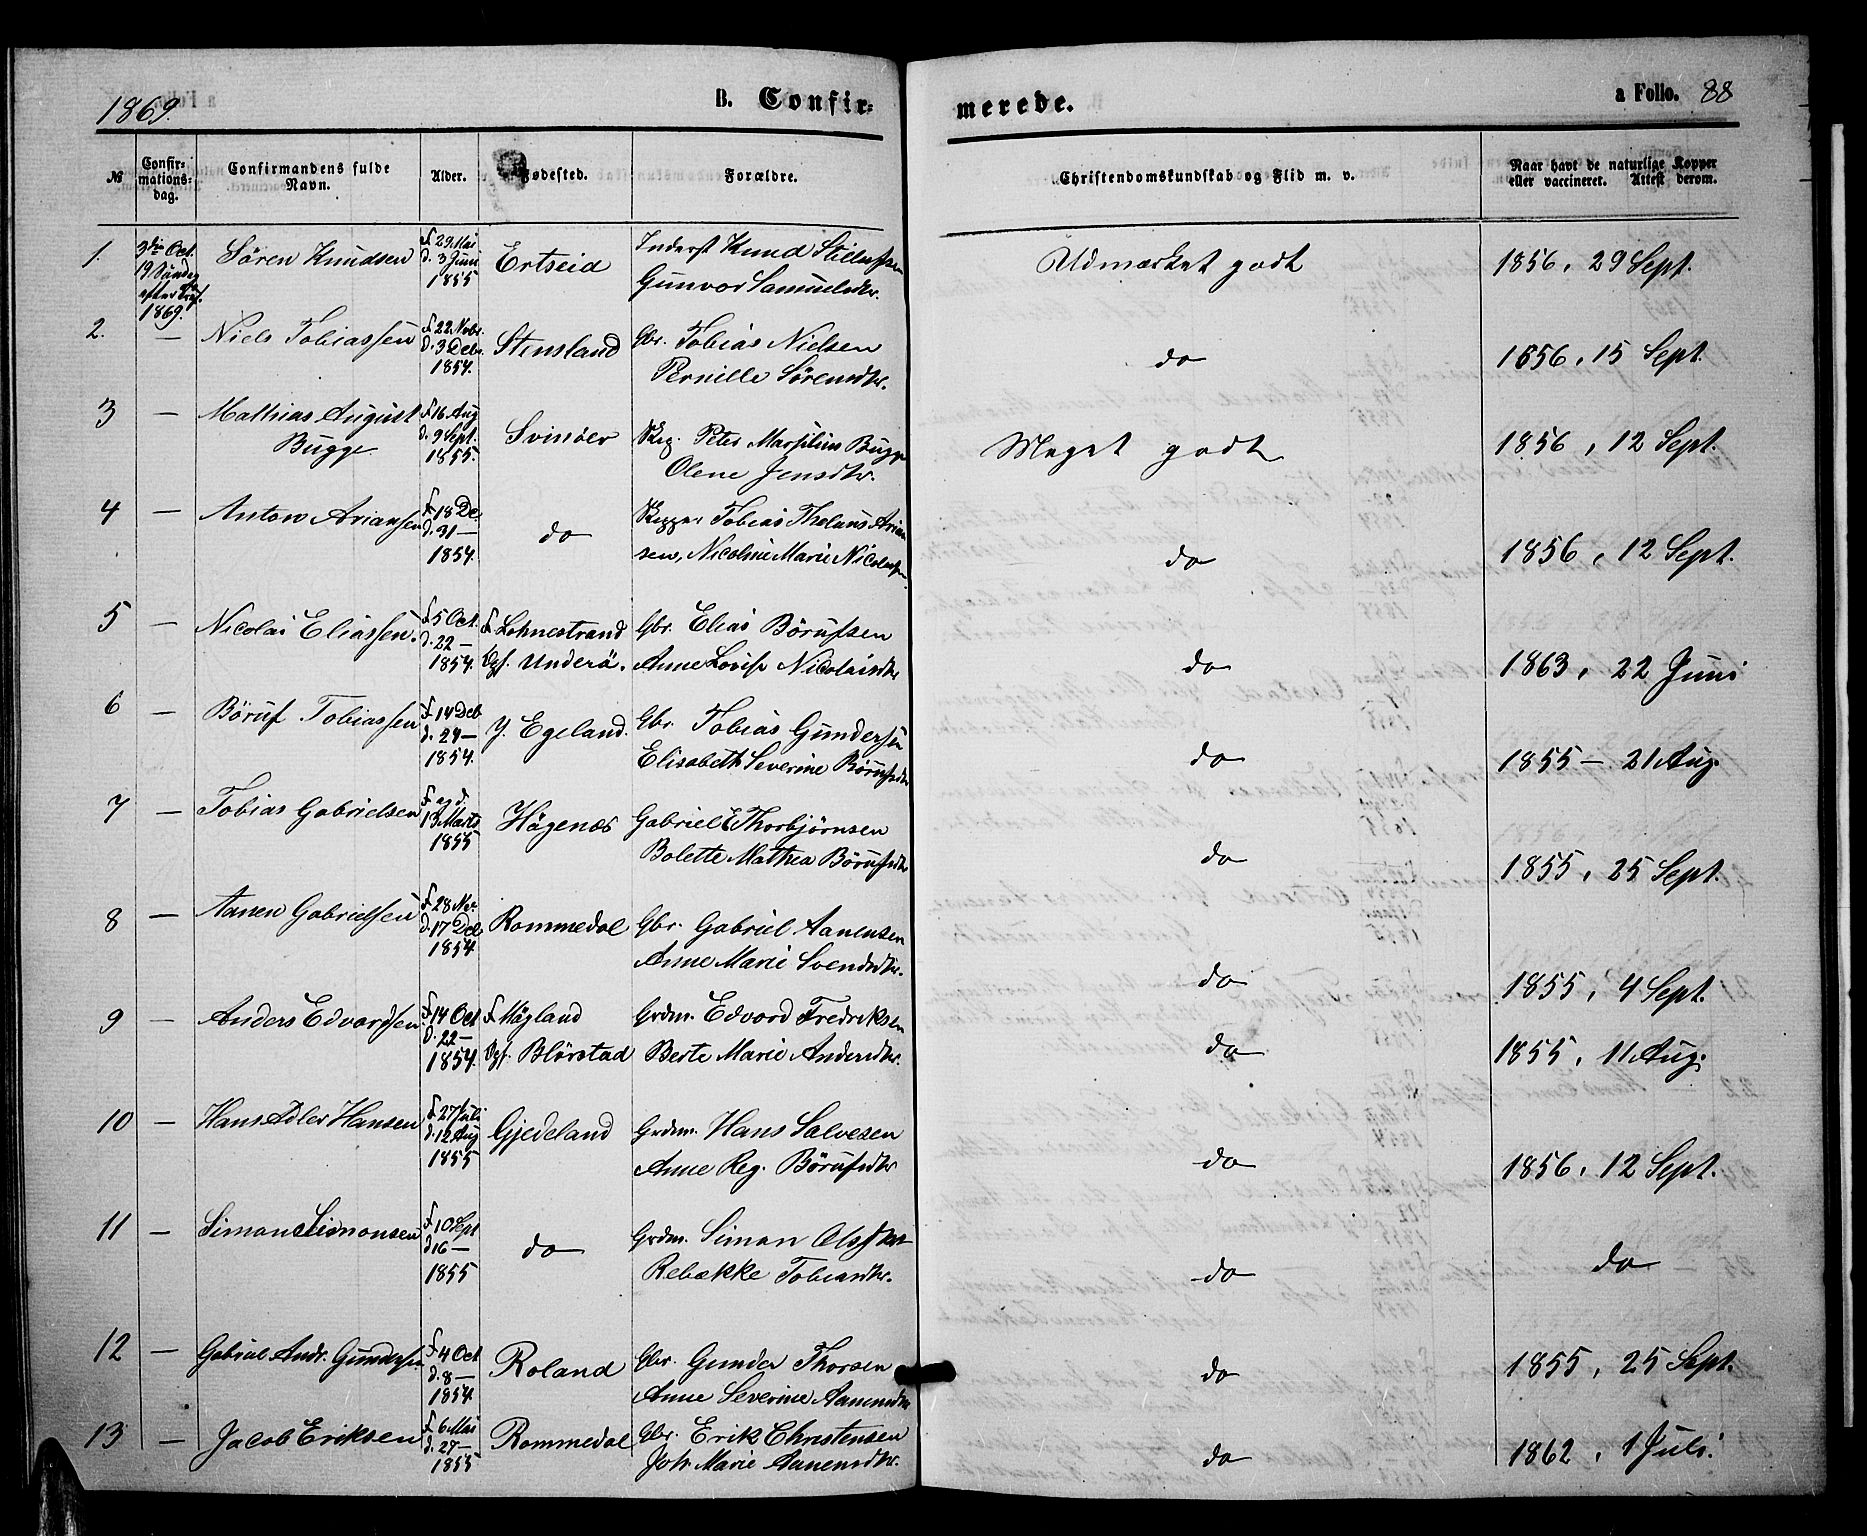 1869.
B. Confir-
merede.
a Folio. 88
№
Confir-
mations-
dag.
Confirmandens fulde
Navn.
Alder.
Fødested.
Forældre.
Christendomskundskab og Flid m. v.
Naar havt de naturlige Kopper
eller vaccineret. Attest derom.
1.
3die Oct.
19 Søndag
efter Tref.
1869.
Søren Knudsen
f. 23 Mai
d. 3 Juni
1855
Ertseid
Inderst Knud
Gunvor Samuelsdtr.
Udmærket godt
1856, 29 Sept.
2.
—
Niels Tobiassen
f. 22 Nvbr.
d. 3 Debr.
1854.
Stensland
Gbr. Tobias Nielsen
Pernille Sørensdtr.
do
1856, 15 Sept.
3
—
Mathias August
Bugge
f. 16 Aug
d. 9 Sept.
1855.
Svinøer
Skip. Peter Marsilius Bugge
Olene Jensdtr.
Meget godt
1856, 12 Sept.
4
—
Anton Ariansen
f. 18 De.
d. 31 —
1854.
do
Skipper Tobias Thelaus Arian
sen, Nicoline Marie
do
1856, 12 Sept.
5
—
Nicolai Eliassen.
f. 5 Oct.
d. 22 —
1854.
f. Lohnestrand
Opf. Underö.
Gbr. Elias Börufsen
Anne Lovise Nicolaisdtr
do
1863, 22 Juni
6
—
Böruf Tobiassen
f. 14 Deb
d. 24 —
1854.
Y. Egeland.
Gbr. Tobias Gundersen
Elisabeth Severine Börufsdtr
do
1855 — 21 Aug.
7
—
Tobias Gabrielsen
f. og d.
13 Marts
1855
Högenæs
Gabriel E Thorbjørnsen
Bolette Mathea Börufsdtr
do
1855, 25 Sept.
8
—
Aanen Gabrielsen
f. 28 Nov.
d. 17 Deb
1854
Rommedal
Gbr. Gabriel Aanensen
Anne Marie Svendsdtr.
do
1855, 4 Sept.
9
—
Anders Edvardsen
f. 14 Oct
d. 22 —
1854.
f. Mögland
Opf. Blörstad
Grdm. Edvard Fredriksen
Berte Marie Andersdtr.
do
1855, 11 Aug.
10
—
Hans Adler Hansen
f. 27 Juli
d. 12 Aug
1855
Gjedeland
Grdm. Hans Salvesen
Anne Reg. Börufsdtr
do
1856, 12 Sept.
11
—
Simon Simonsen
f. 10 Sept
d. 16 —
1855
do
Grdm. Simon
Rebække Tobiasdtr.
do
do
12
—
Gabriel Andr. Gundersen
f. 4 Oct
d. 8 —
1854.
Roland
Gbr. Gunder Thorsen
Anne Severine Aanensdtr
do
1855, 25 Sept.
13
—
Jacob Eriksen
f. 6 Mai
d. 27 —
1855
Rommedal
Gbr. Erik Christensen
Joh. Marie Aanensdtr.
do
1862, 1 Juli.